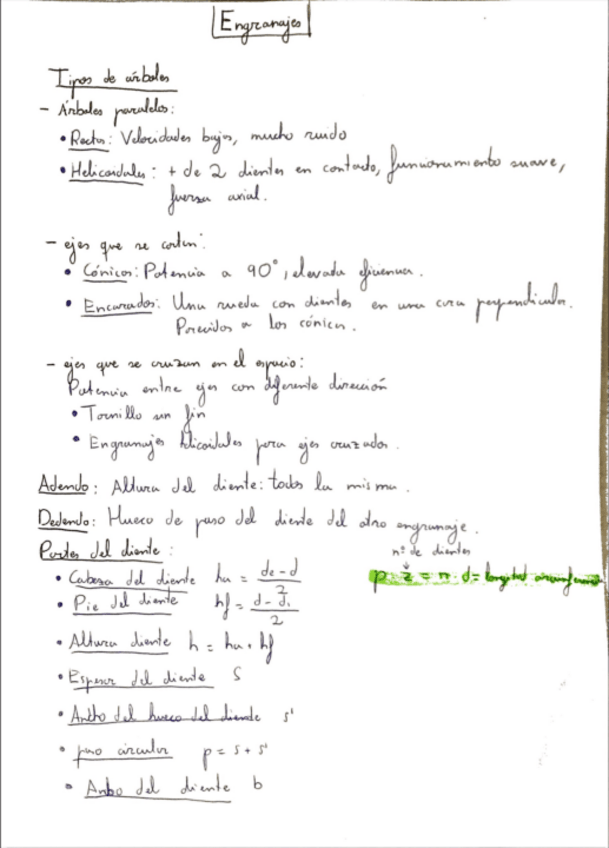 Engranajes
Tipos de árboles
- Árboles paralelos:
• Rectos: Velocidades bajas, mucho ruido
• Helicoidales: + de 2 dientes en contacto, funcionamiento suave,
fuerza axial.
- ejes que se cortan:
• Cónicos: Potencia a 90°, elevada eficiencia.
• Encarados: Una rueda con dientes en una cara perpendicular.
Parecidos a los cónicos.
- ejes que se cruzan en el espacio:
Potencia entre ejes con diferente dirección
• Tornillo sin fin
• Engranajes helicoidales para ejes cruzados.
Adendo: Altura del diente: todos la misma.
Dedendo: Hueco de paso del diente del otro engranaje.
Partes del diente:
nº de dientes
• Cabeza del diente ha = (de - d)/2
p · z = π · d = longitud circunferencia
• Pie del diente hf = (d - di)/2
• Altura diente h = ha + hf
• Espesor del diente s
• Ancho del hueco del diente s'
• paso circular p = s + s'
• Ancho del diente b